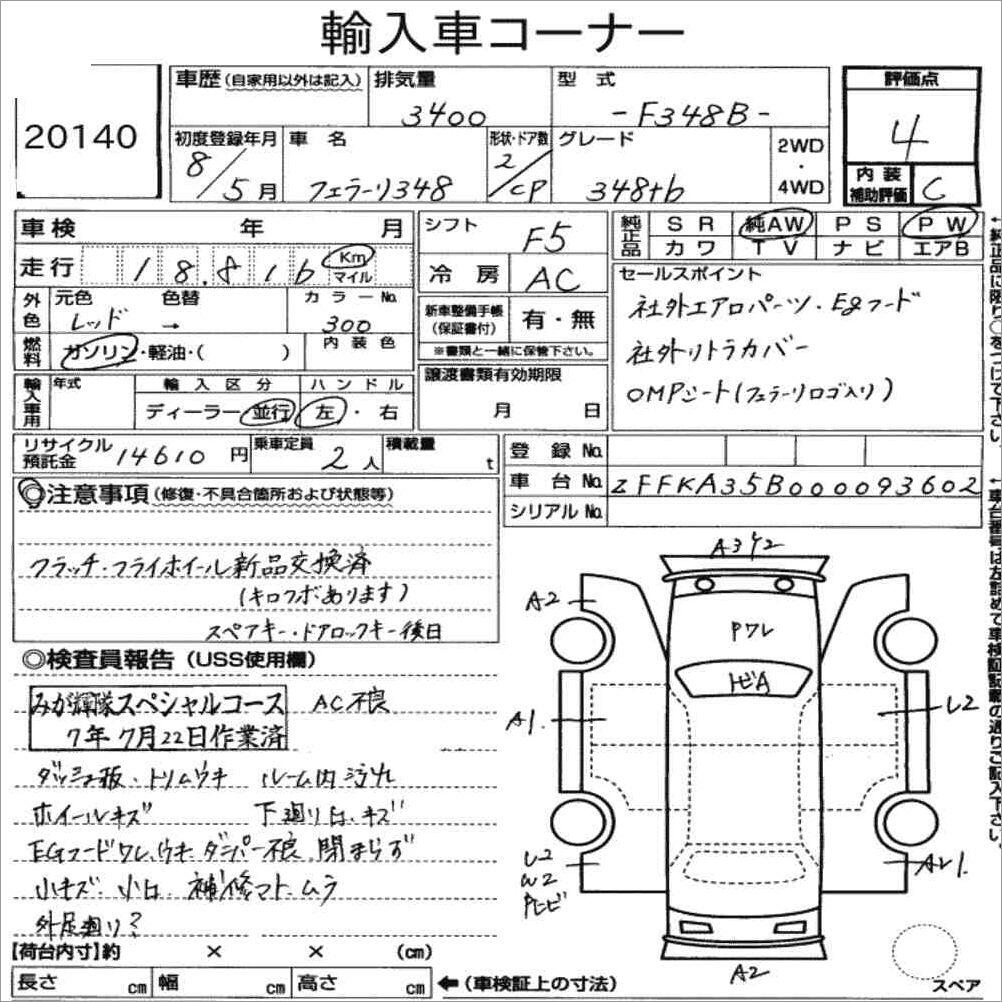 輸入車コーナー
20140
車歴(自家用以外は記入)
排気量
3400
型式
-F348B-
評価点
4
初度登録年月
8/5月
車名
フェラーリ348
形状・ドア数
2/CP
グレード
348tb
2WD
・
4WD
内装
補助評価
C
車検 年 月
走行 18.816 Km マイル
シフト
F5
冷房
AC
純正品
SR 純AW PS PW
カワ TV ナビ エアB
外色
元色 色替
レッド →
カラーNo.
300
燃料
ガソリン・軽油・( )
内装色
新車整備手帳
(保証書付)
有・無
※書類と一緒に保管下さい。
セールスポイント
社外エアロパーツ・Egフード
社外リトラカバー
OMPシート(フェラーリロゴ入り)
輸入車用
年式
輸入区分
ディーラー・並行
ハンドル
左・右
譲渡書類有効期限
月 日
リサイクル
預託金
14610円
乗車定員
2人
積載量
t
登録No.
車台No. ZFFKA35B000093602
シリアルNo.
◎注意事項(修復・不具合箇所および状態等)
クラッチ・フライホイール新品交換済
(キロクボあります)
スペアキー・ドアロックキー後日
◎検査員報告(USS使用欄)
みが輝隊スペシャルコース
7年7月22日作業済
AC不良
ダッシュ板・トリムウキ ルーム内汚れ
ホイールキズ 下廻り凹、キズ
EGフードワレ、ウキ、ダンパー不良、閉まらず
小キズ 小凹 補修マト、ムラ
外足廻り?
【荷台内寸】約 × × (cm)
長さ cm 幅 cm 高さ cm
←(車検証上の寸法)
A2
Pワレ
トビA
A2
A1
U2
U2
W2
AU1
A2
スペア
↑純正品に限り○をつけて下さい。
↑車台番号は左詰めで車検証記載の通りご記入下さい。